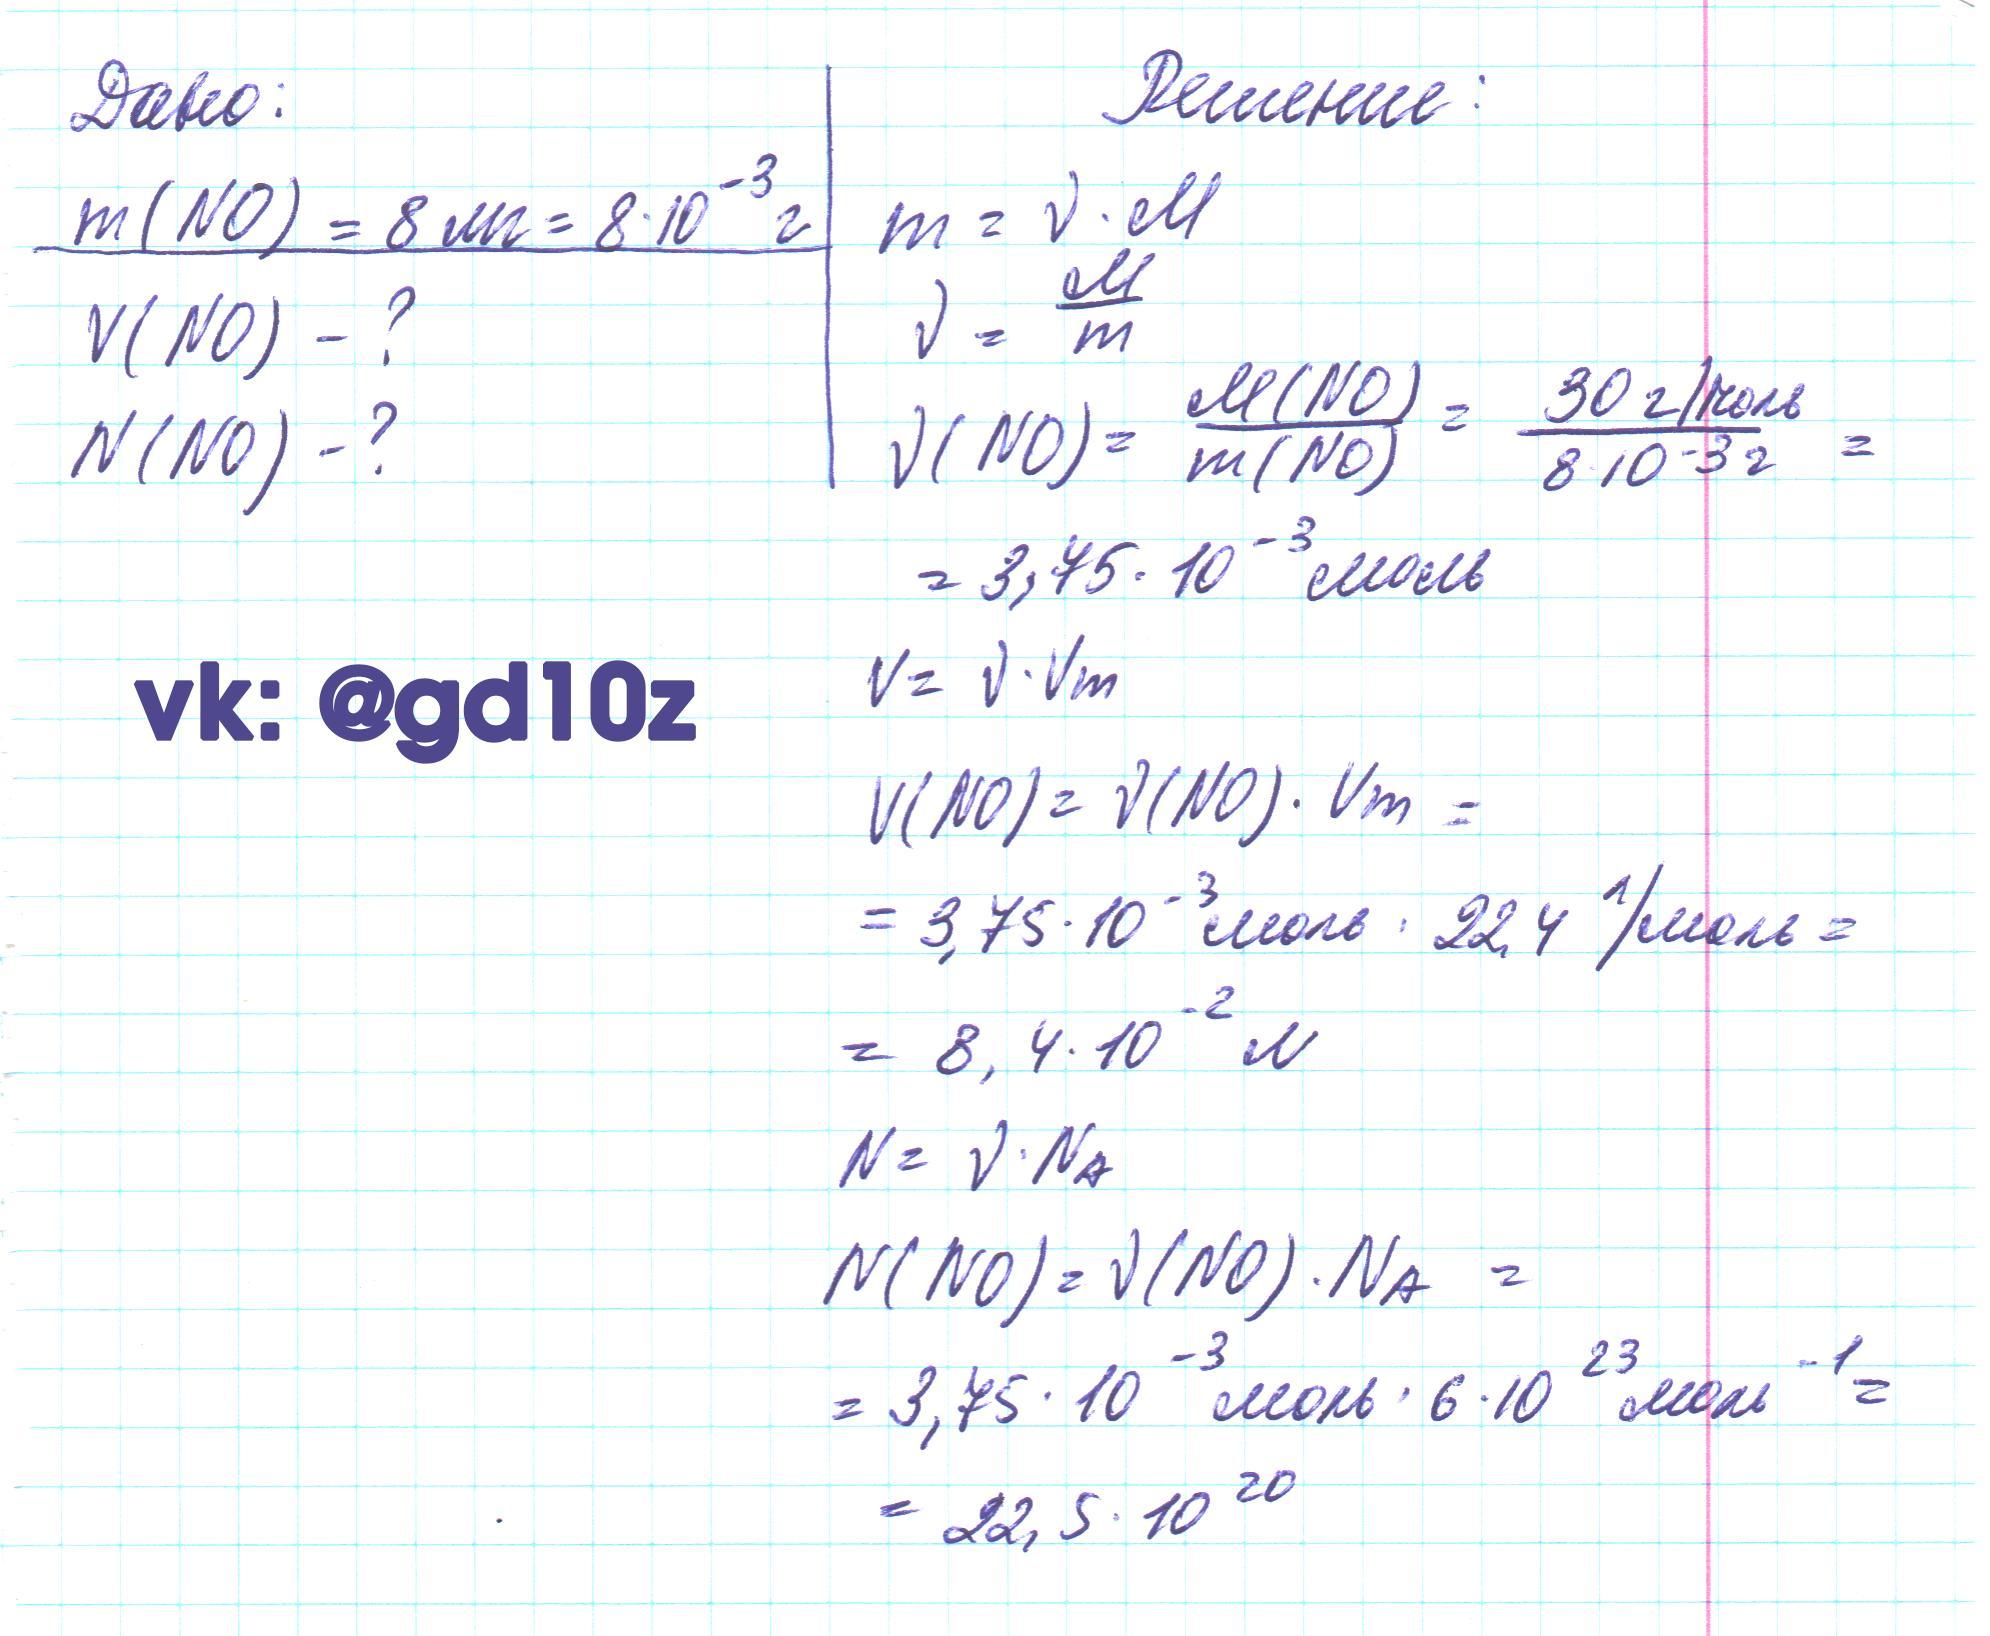 Дано:
m(NO) = 8 мг = 8·10⁻³ г
V(NO) - ?
N(NO) - ?
vk: @gd10z
Решение:
m = ν·M
ν = M/m
ν(NO) = M(NO)/m(NO) = 30 г/моль / 8·10⁻³ г =
= 3,75·10⁻³ моль
V = ν·Vm
V(NO) = ν(NO)·Vm =
= 3,75·10⁻³ моль · 22,4 л/моль =
= 8,4·10⁻² л
N = ν·NA
N(NO) = ν(NO)·NA =
= 3,75·10⁻³ моль · 6·10²³ моль⁻¹ =
= 22,5·10²⁰